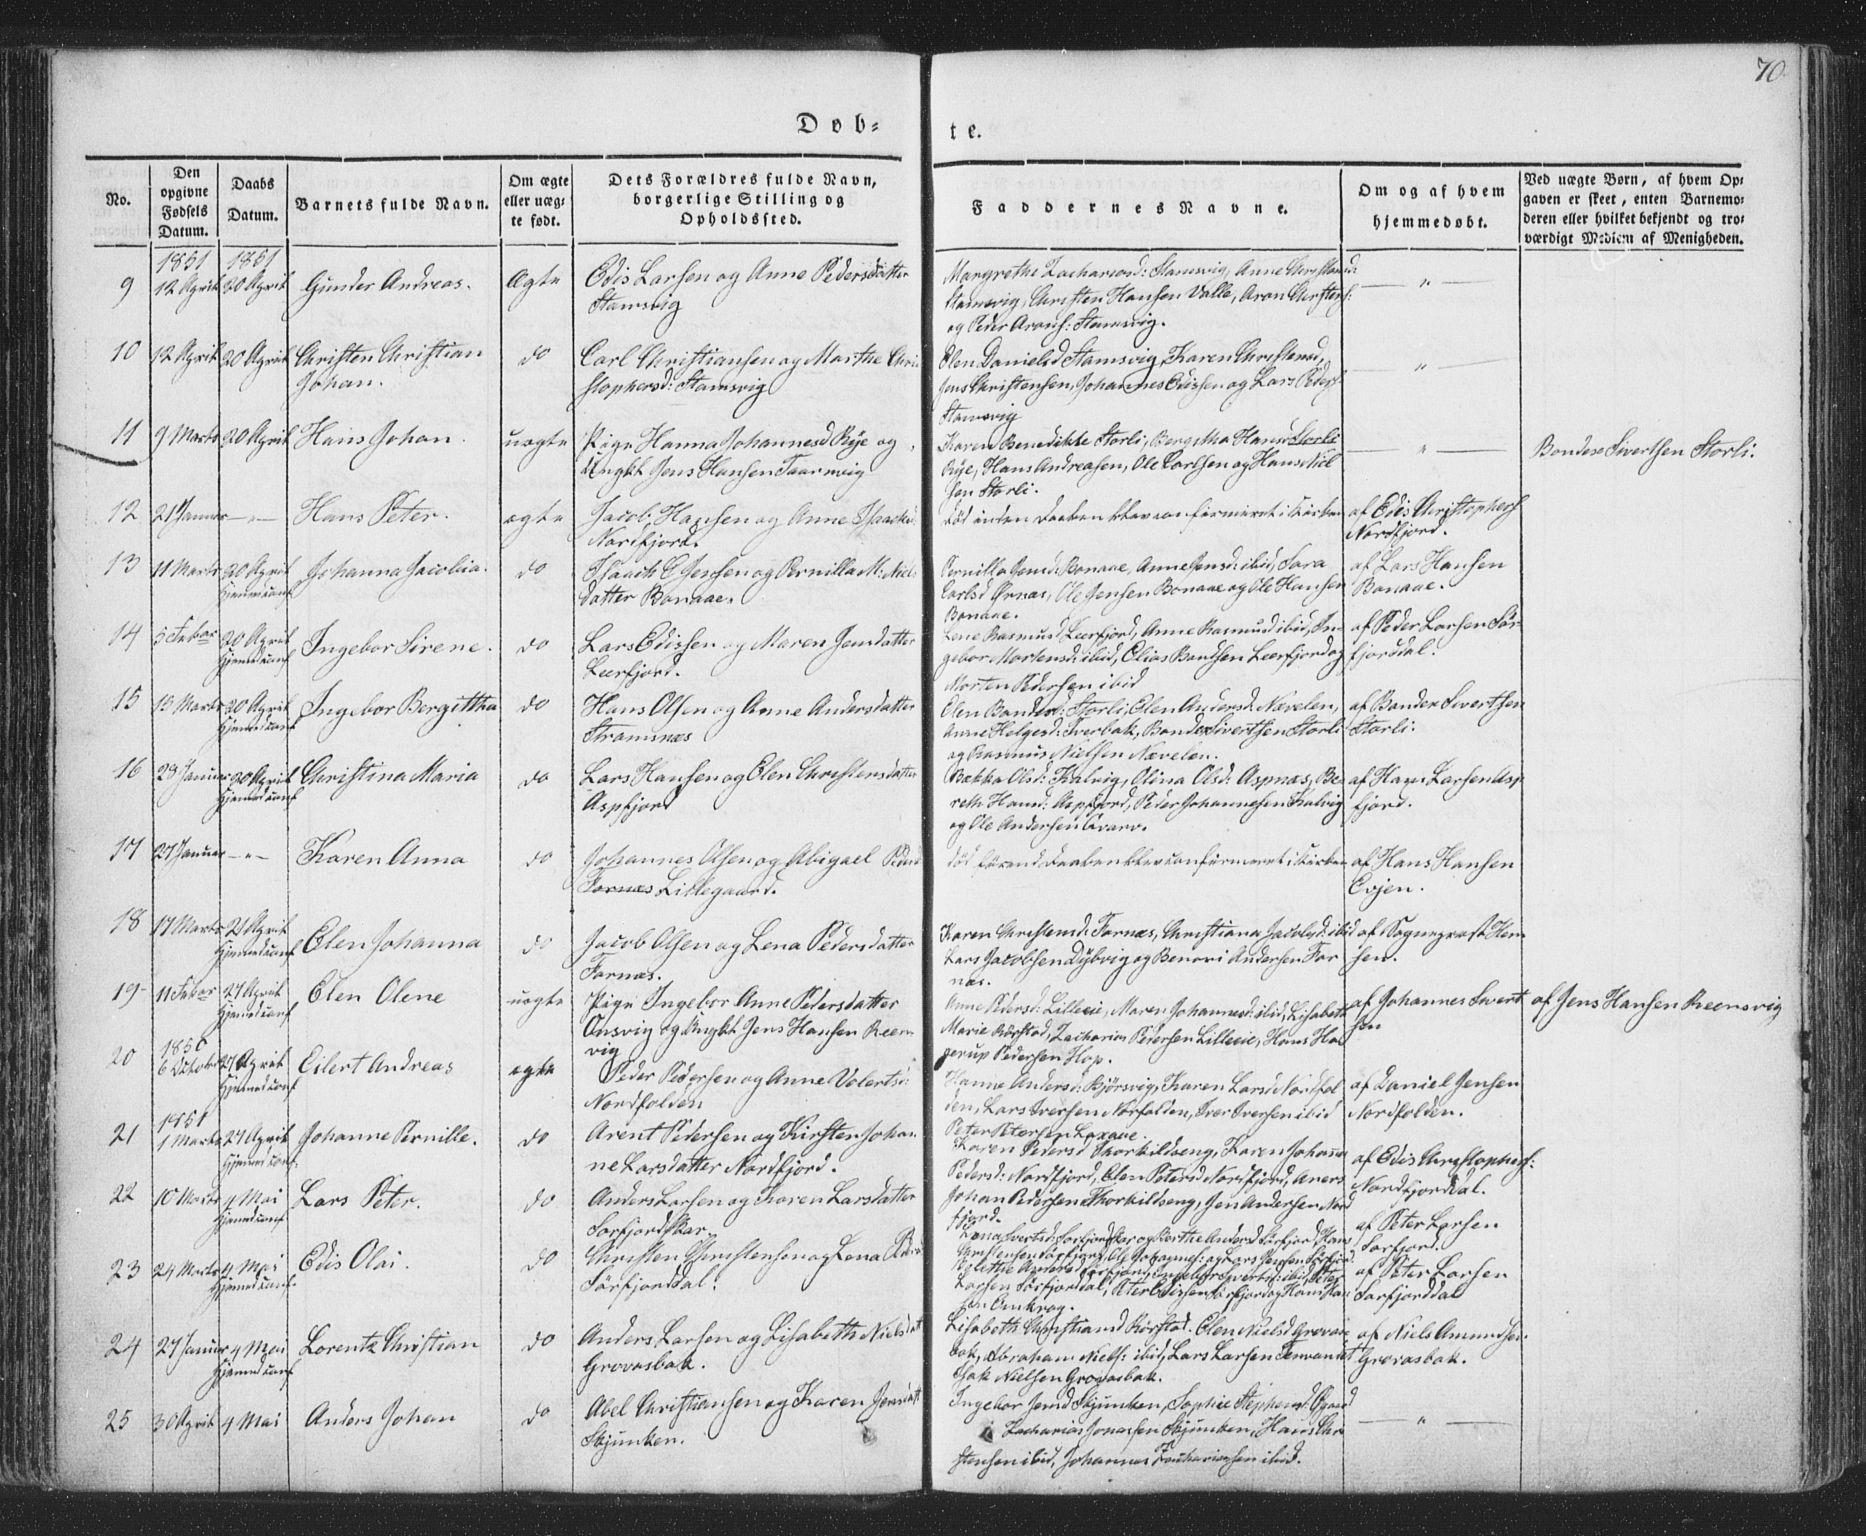 70.
Døb=
te.
No.
Den opgivne Fødsels Datum.
Daabs Datum.
Barnets fulde Navn.
Om ægte eller uægte født.
Dets Forældres fulde Navn, borgerlige Stilling og Opholdssted.
Faddernes Navne.
Om og af hvem hjemmedøbt.
Ved uægte Børn, af hvem Opgaven er skeet, enten Barnemoderen eller hvilket bekjendt og troværdigt Medlem af Menigheden.
1851 1851
9 12 April 20 April Gunder Andreas. Ægte Edis Larsen og Anne Pedersdatter
Stamsvig
Margrethe Zachariasd: Stamsvig, Anne Christensd:
Stamsvig, Christen Hansen Valle, Aron Christens:
og Peder Arons: Stamsvig.
— " —
10 12 April 20 April Christen Christian
Johan.
do Carl Christiansen og Marthe Chri
stophersd: Stamsvig
Elen Danielsd Stamsvig, Karen Christensd,
Jens Christensen, Johannes Edissen og Lars Peders
Stamsvig
"
11 9 Marts 20 April Hans Johan. uægte Pige Hanna Johannesd Rye og
Ungkl Jens Hansen Taarnvig
Karen Benedikte Storli, Bergitha Hansd Storli
Rye, Hans Andreasen, Ole Carlsen og Hans Nil
sen Storli.
— " —
Bonde Sivertsen Storli.
12 21 Januar — " — Hans Peter. ægte Jacob Hansen og Anne Isaachsd
Norfjord.
død inden Daaben blev confirmeret i Kirken
af Edis Christophers
Nordfjord.
13 11 Marts 20 April
Hjemmed conf
Johanna Jacobia. do Isaach E Jensen og Pernilla M: Niels
datter Bonaae.
Pernilla Jensd: Bonaae, Anne Jensd: ibid, Sara
Carlsd Ørnæs, Ole Jensen Bonaae og Ole Hansen
Bonaae.
af Lars Hansen
Bonaae.
14 5 Febar 20 April
Hjemmed conf
Ingebor Sirene. do Lars Edissen og Maren Jensdatter
Leerfjord.
Lene Rasmusd Leerfjord, Anne Rasmusd ibid, In
gebor Mortensd: ibid, Elias Bentsen Leerfjord og
Morten Pedersen ibid
af Peder Larsen Sør
fjorddal.
15 13 Marts 20 April
Hjemmed conf
Ingebor Bergittha do Hans Olsen og Anne Andersdatter
Stramsnæs
Elen Bonded: Storli, Elen Andersd. Nævelen,
Anne Helgesd: Tverbak, Bonde Sivertsen Storli
og Rasmus Nielsen Nævelen.
af Bonde Sivertsen
Storli.
16 28 Januar 20 April
Hjemmed conf
Christina Maria do Lars Hansen og Elen Christensdatter
Aspfjord
Bekka Olsd: Kalvig, Olina Olsd: Aspnæs, Be
reth Hansd: Aspfjord, Peder Johannesen Kalvig
og Ole Andersen
af Hans Larsen Asp
fjord.
17 27 Januar — " — Karen Anna do Johannes Olsen og Abigael Pedersd
Fornæs Lillegaard.
død førend Daaben blev confirmeret i Kirken
af Hans Hansen
Evjen.
18 17 Marts 21 April
Hjemmed conf
Elen Johanna do Jacob Olsen og Lena Pedersdatter
Fornæs.
Karen Christensd: Fornæs, Christiana Jacobsd: ibid
Lars Jacobsen Dybvig og Benoni Andersen For
næs.
af Sognepræst Hen
sen.
19 11 Febar 27 April
Hjemmed conf
Elen Olene uægte Pige Ingebor Anne Pedersdatter
Onsvig og Ungkl Jens Hansen Reens
vig
Anne Pedersd: Lilleeie, Maren Johannesd: ibid, Lisabeth
Marie Rørstad, Zacharias Pedersen Lilleeie, Hans Ha
gerup Pedersen Hop.
af Johannes Sivert
sen
af Jens Hansen Reensvig
1850
20 6 October 27 April
Hjemmed conf
Eilert Andreas ægte Peder Pedersen og Anne Volertsd:
Nordfolden
Hanne Andersd: Bjørsvig, Karen Larsd Nordfol
den, Lars Iversen Norfolden, Iver Iversen ibid
Peter Petersen
af Daniel Jensen
Nordfolden.
1851
21 1 Marts 27 April
Hjemmed conf.
Johanne Pernille. do Arent Pedersen og Kirsten Johan
ne Larsdatter Nordfjord.
Karen Pedersd Thorkildseng, Karen Johanna
Pedersd: Nordfjord, Elen Petersd Nordfjord,
Johan Pedersen Thorkildseng, Jens Andersen Nord
fjord.
af Edis Christophers:
Nordfjorddal.
22 10 Marts 4 Mai
Hjemmed conf
Lars Peter. do Anders Larsen og Karen Larsdatter
Sørfjordskar.
Lena Sivertsd: Sørfjordskar og Berthe Andersd Sørfjord, Hans
Christensen Sørfjord, Ole Johannes: og Lars Jensen Sørfjord.
af Peter Larsen
Sørfjord.
23 24 Marts 4 Mai
Hjemmed conf.
Edis Olai. do Christen Christensen og Lena Peders
Sørfjorddal.
Larsen Sørfjorddal, Peter Edissen Sørfjord og Hans Han
sen Omkrog.
af Peter Larsen
Sørfjorddal
24 27 Januar 4 Mai
Hjemmed conf
Lorentz Christian do Anders Larsen og Lisabeth Nielsdat
Grovasbak.
Lisabeth Christiansd Rørstad, Elen Nielsd Grovas
bak, Abraham Niels: ibid, Lars Larsen Temvandet
Isak Nielsen Grovasbak.
af Niels Amundsen
Grovasbak.
25 30 April 4 Mai Anders Johan do Abel Christiansen og Karen Jensdatt
Skjunken.
Ingebor Jensd Skjunken, Sophie Stephensd
Zacharias Jonassen Skjunken, Hans Chr
stensen ibid, Johannes Zachariassen ibid.
— " —